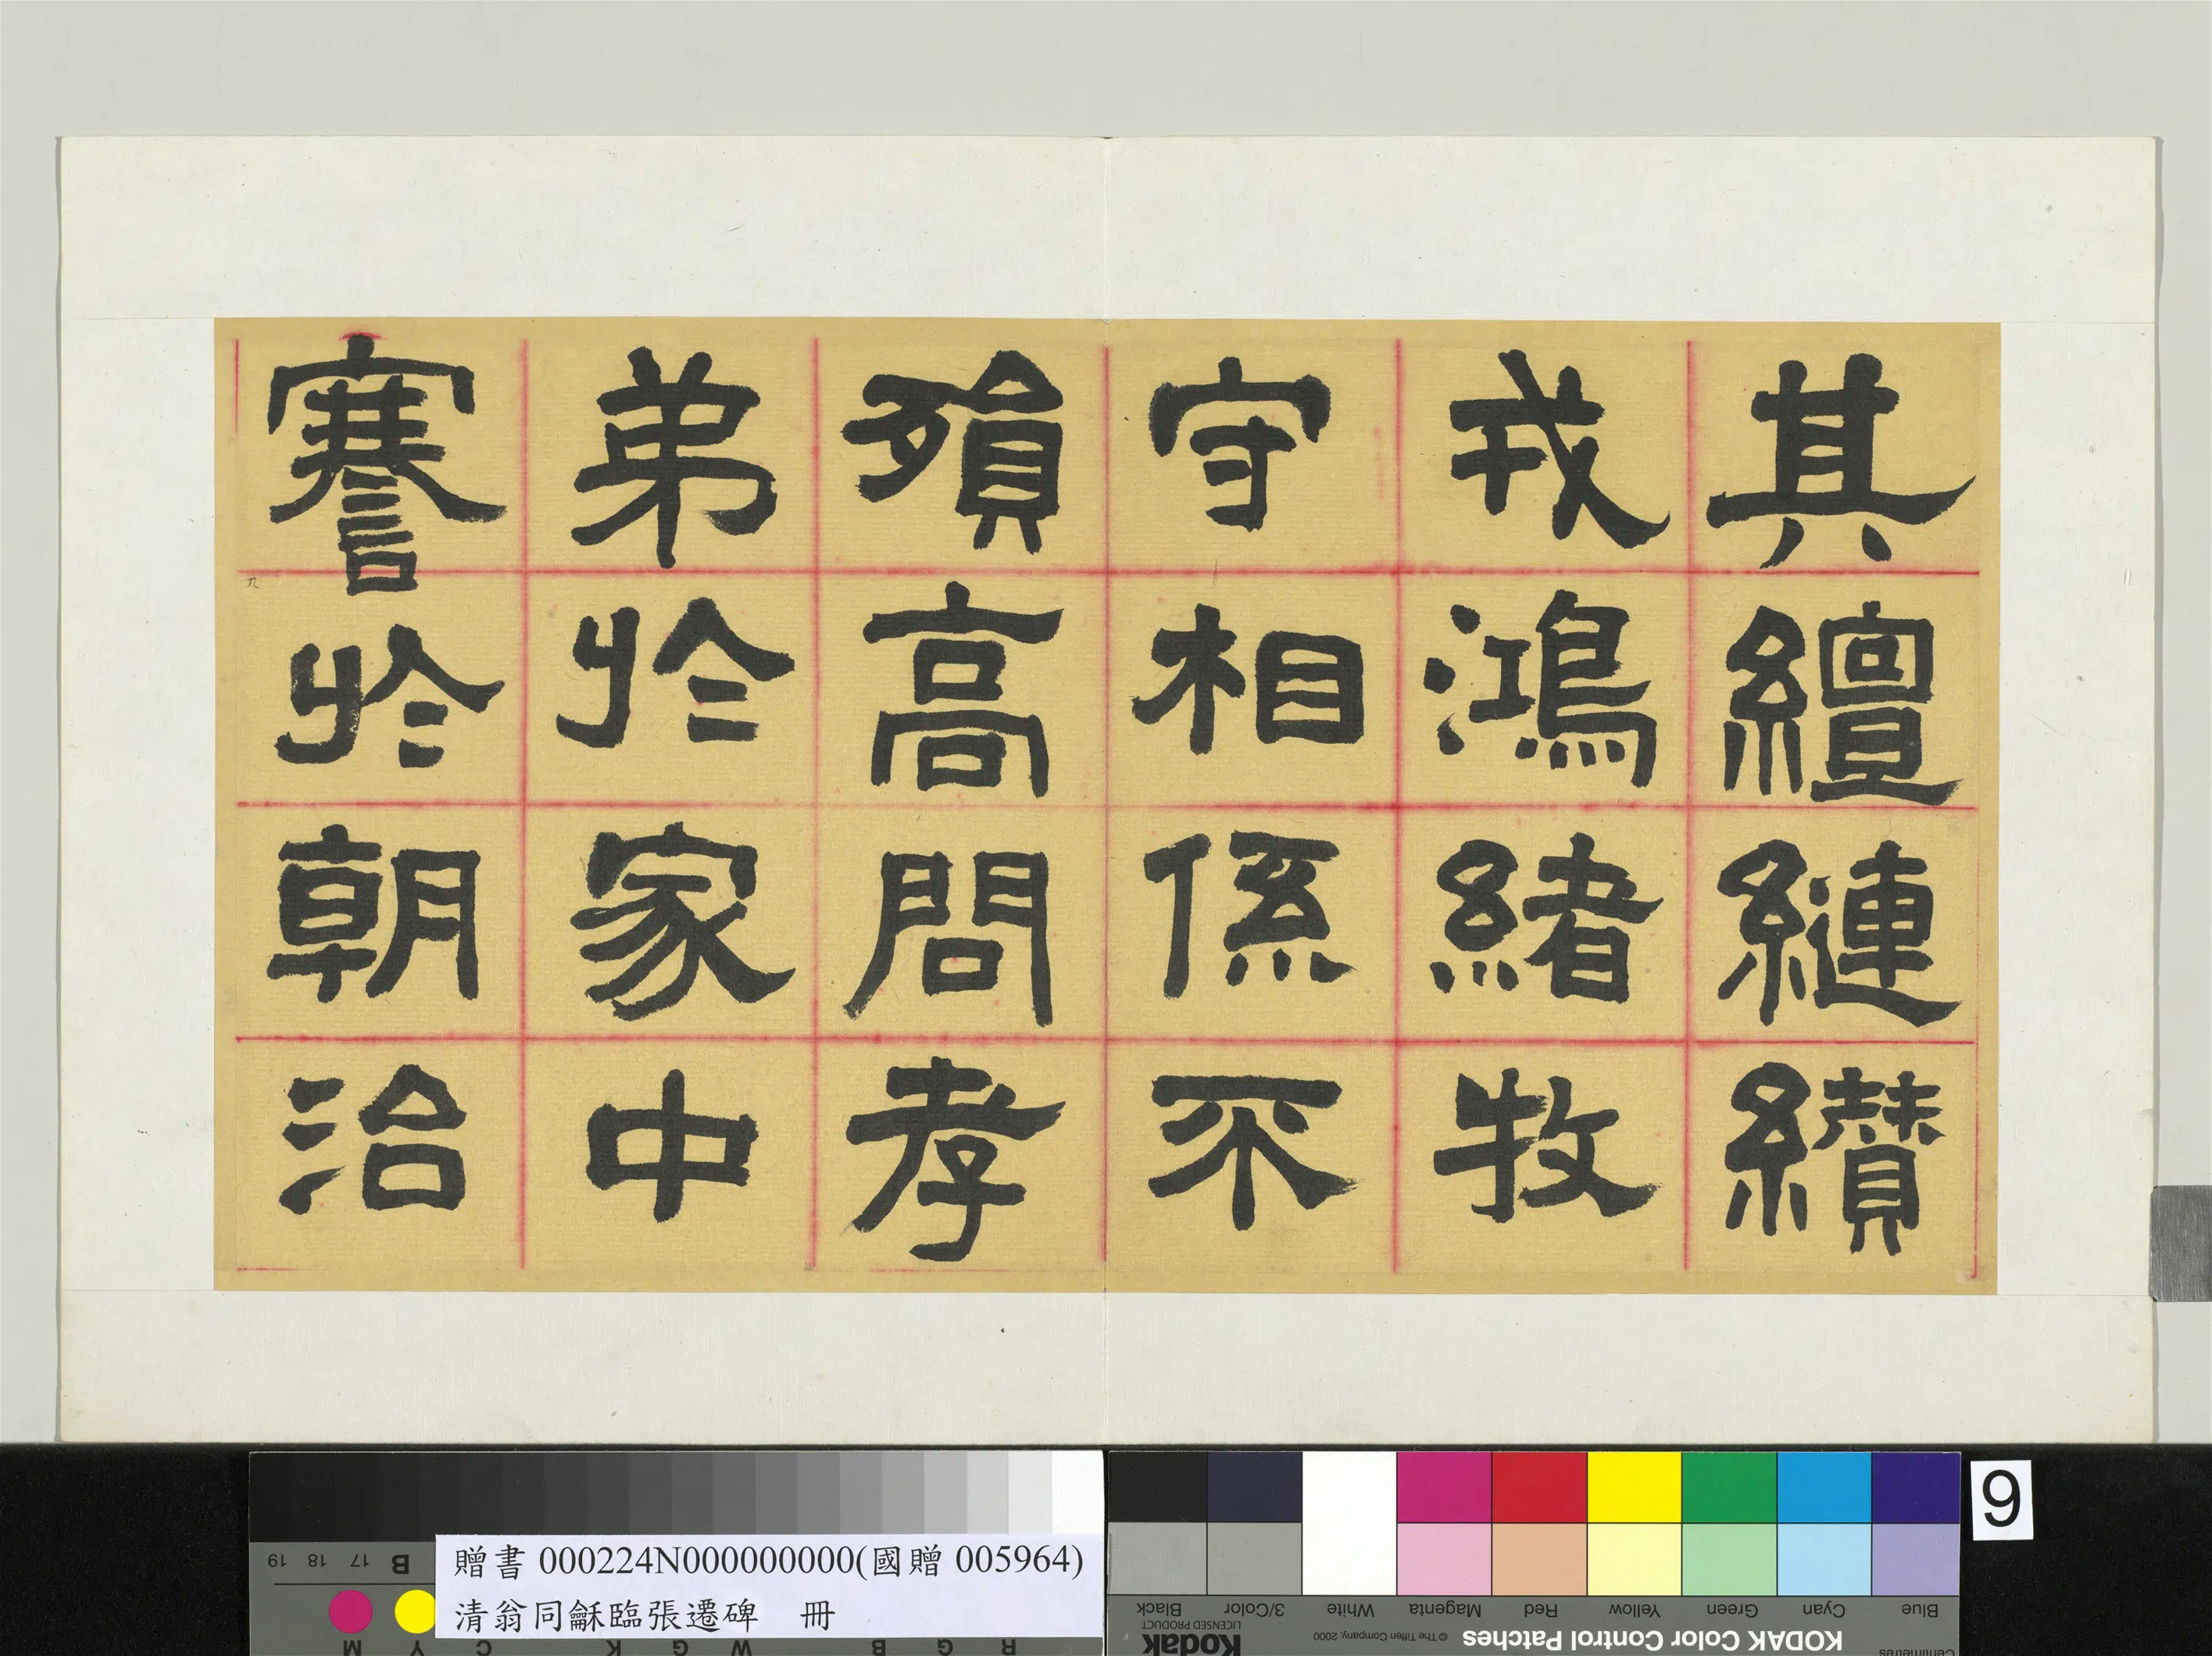 其繵縺纘
戎鴻緒牧
守相係不
殞高問孝
弟於家中
謇於朝治
九
贈書 000224N000000000(國贈 005964)
清翁同龢臨張遷碑 冊
9
KODAK Color Control Patches
© The Tiffen Company, 2000
Kodak
LICENSED PRODUCT
Blue Cyan Green Yellow Red Magenta White 3/Color Black
Centimetres
R G B W G K C Y M
B 17 18 19